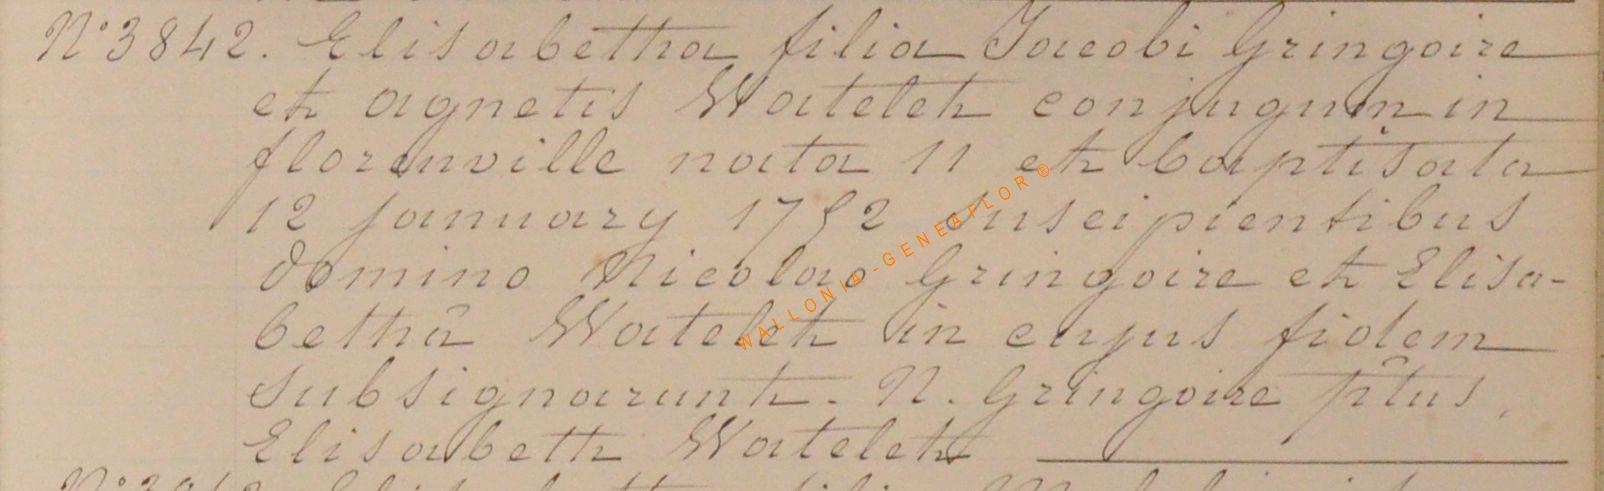 N° 3842. Elisabetha filia Jacobi Gringoire
et agnetis Watelet conjugum in
florenville nata 11 et baptisata
12 january 1752 suscipientibus
domino Nicolao Gringoire et Elisa-
bethâ Watelet in cujus fidem
subsignarunt. N. Gringoire ptus,
Elisabeth Watelet
WALLONIA-GENEAFLOR ®